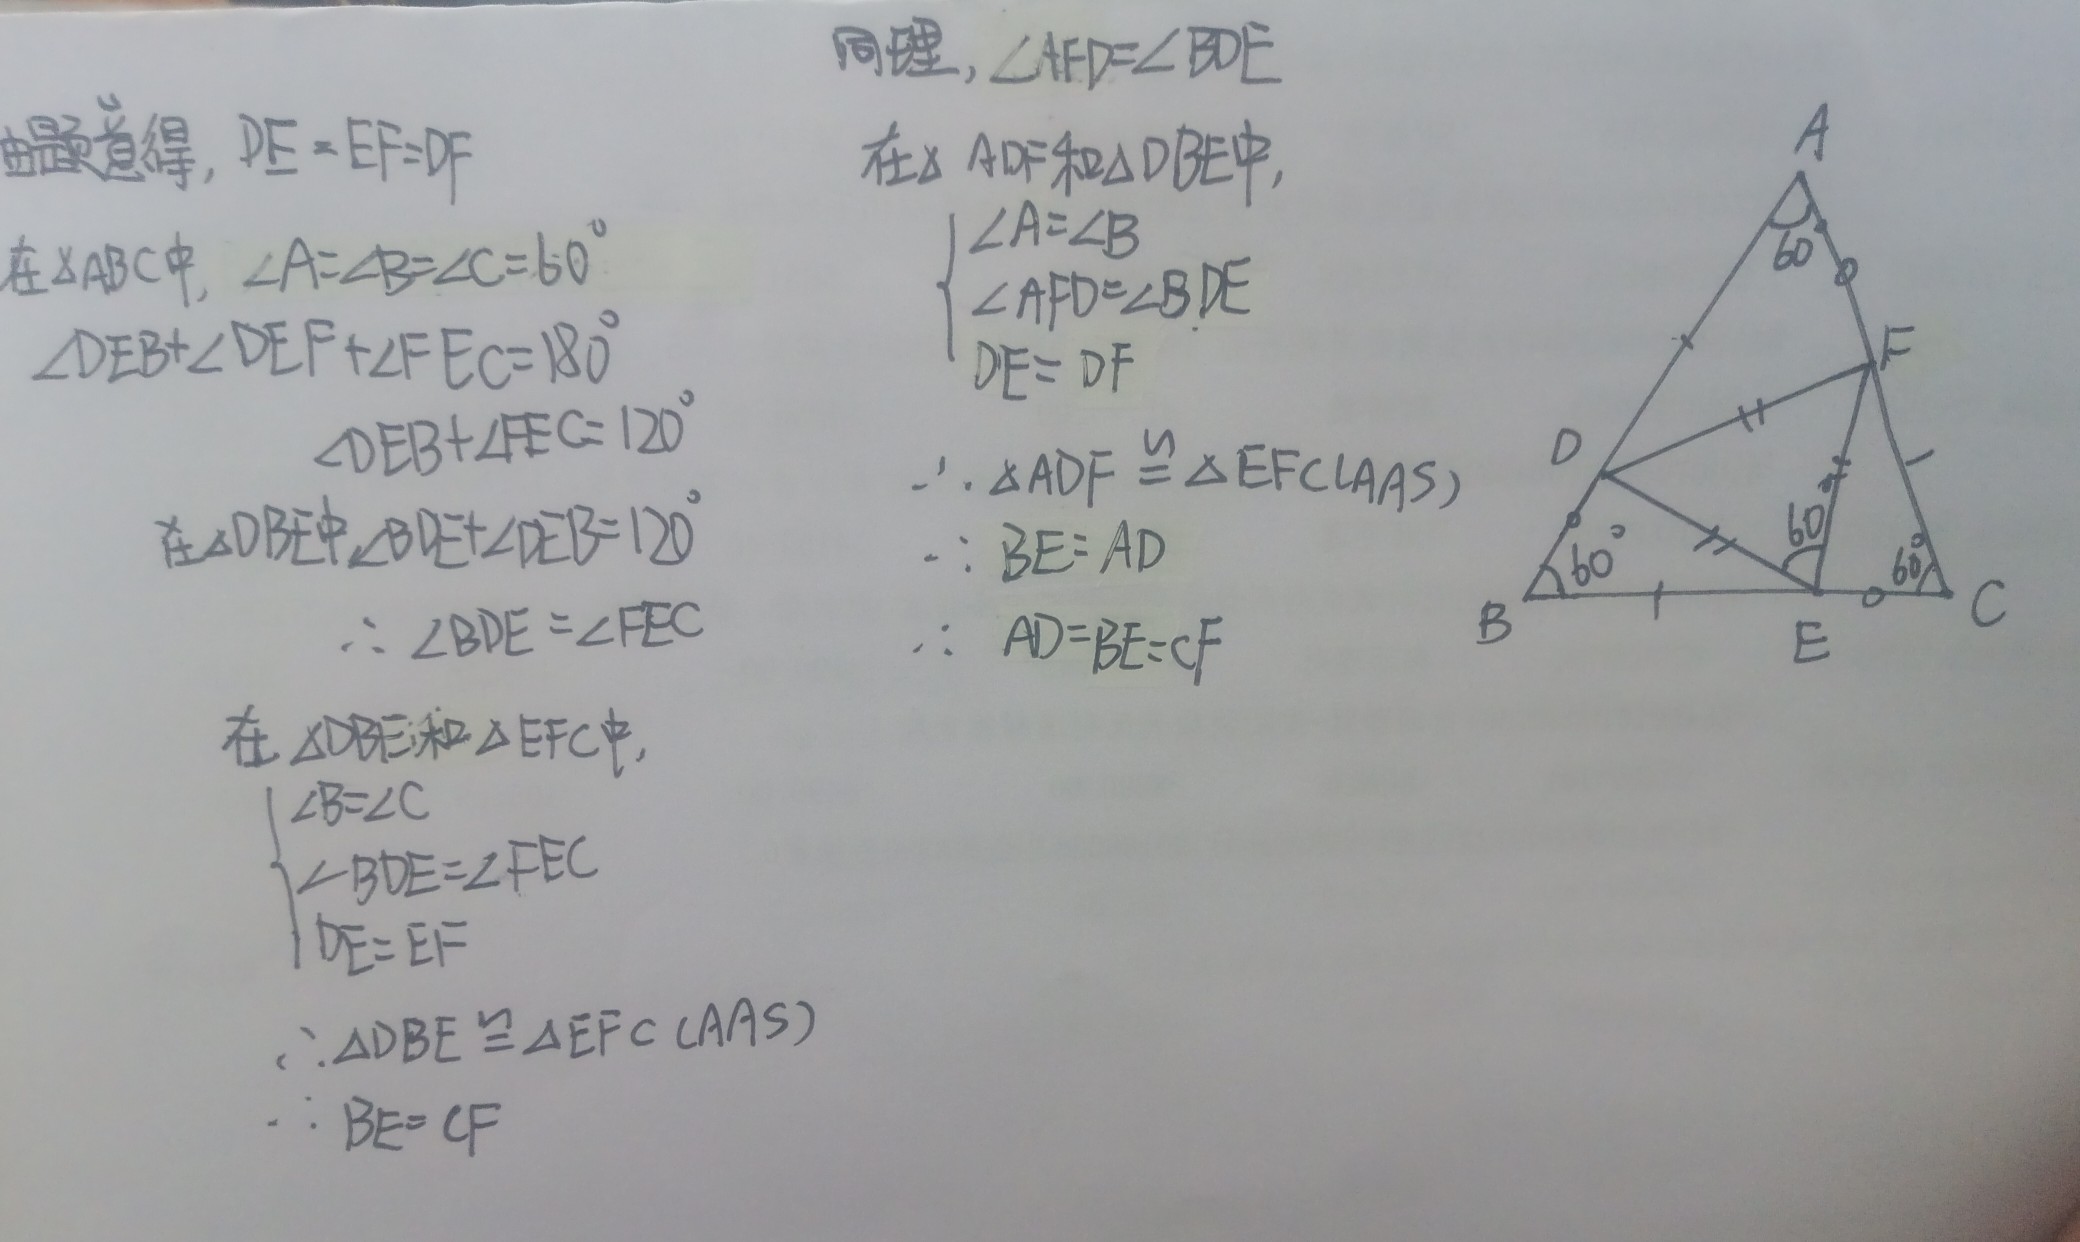 由题意得, DE=EF=DF
在△ABC中, ∠A=∠B=∠C=60°
∠DEB+∠DEF+∠FEC=180°
∠DEB+∠FEC=120°
在△DBE中,∠BDE+∠DEB=120°
∴ ∠BDE=∠FEC
在△DBE和△EFC中,
∠B=∠C
∠BDE=∠FEC
DE=EF
∴△DBE≌△EFC(AAS)
∴ BE=CF
同理,∠AFD=∠BDE
在△ADF和△DBE中,
∠A=∠B
∠AFD=∠BDE
DE=DF
∴△ADF≌△EFC(AAS)
∴ BE=AD
∴ AD=BE=CF
A
60
F
D
60°
60
60°
B
E
C